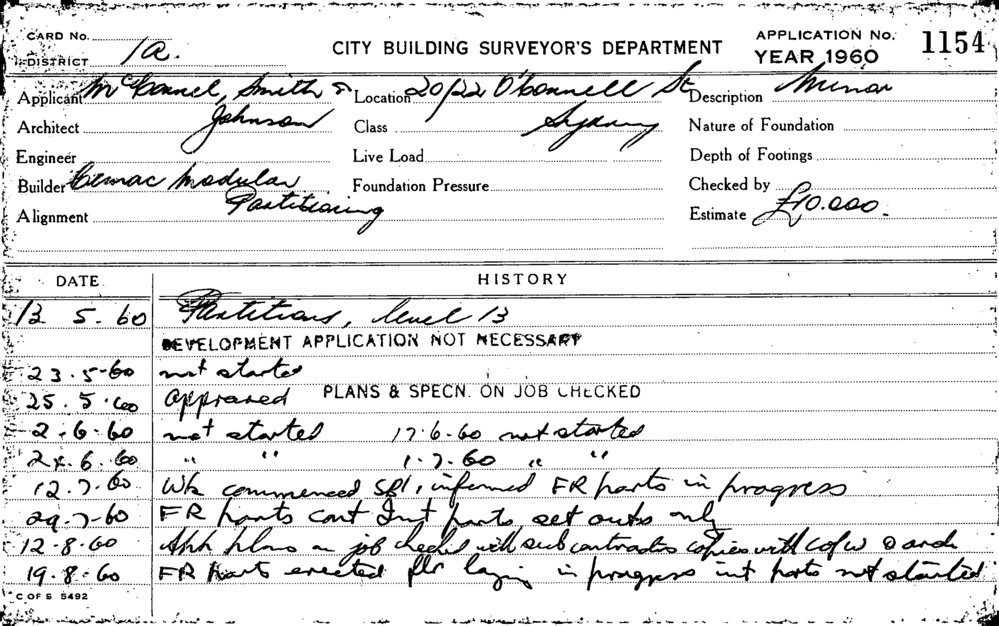 CARD No.
DISTRICT 1a.
CITY BUILDING SURVEYOR'S DEPARTMENT
APPLICATION No. 1154
YEAR 1960
Applicant McConnel, Smith &
Johnson
Location 20/22 O'Connell St
Sydney
Description Minor
Architect
Class
Nature of Foundation
Engineer
Live Load
Depth of Footings
Builder Cemac Modular
Partitioning
Foundation Pressure
Checked by
Alignment
Estimate £10.000.
DATE
HISTORY
13 5. 60 Partitions, level 13
DEVELOPMENT APPLICATION NOT NECESSARY
23.5-60 not started
25.5.60 approved PLANS & SPECN. ON JOB CHECKED
2-6-60 not started 17.6.60 not started
24.6.60 " " 1.7.60 " "
12.7.60 Wk commenced informed FR parts in progress
29.7-60 FR parts cont Int parts set outs only
12-8-60 plans on job checked with sub contractors copies with C of W and
19.8.60 FR parts erected flr laying in progress int parts not started
C OF S 5492